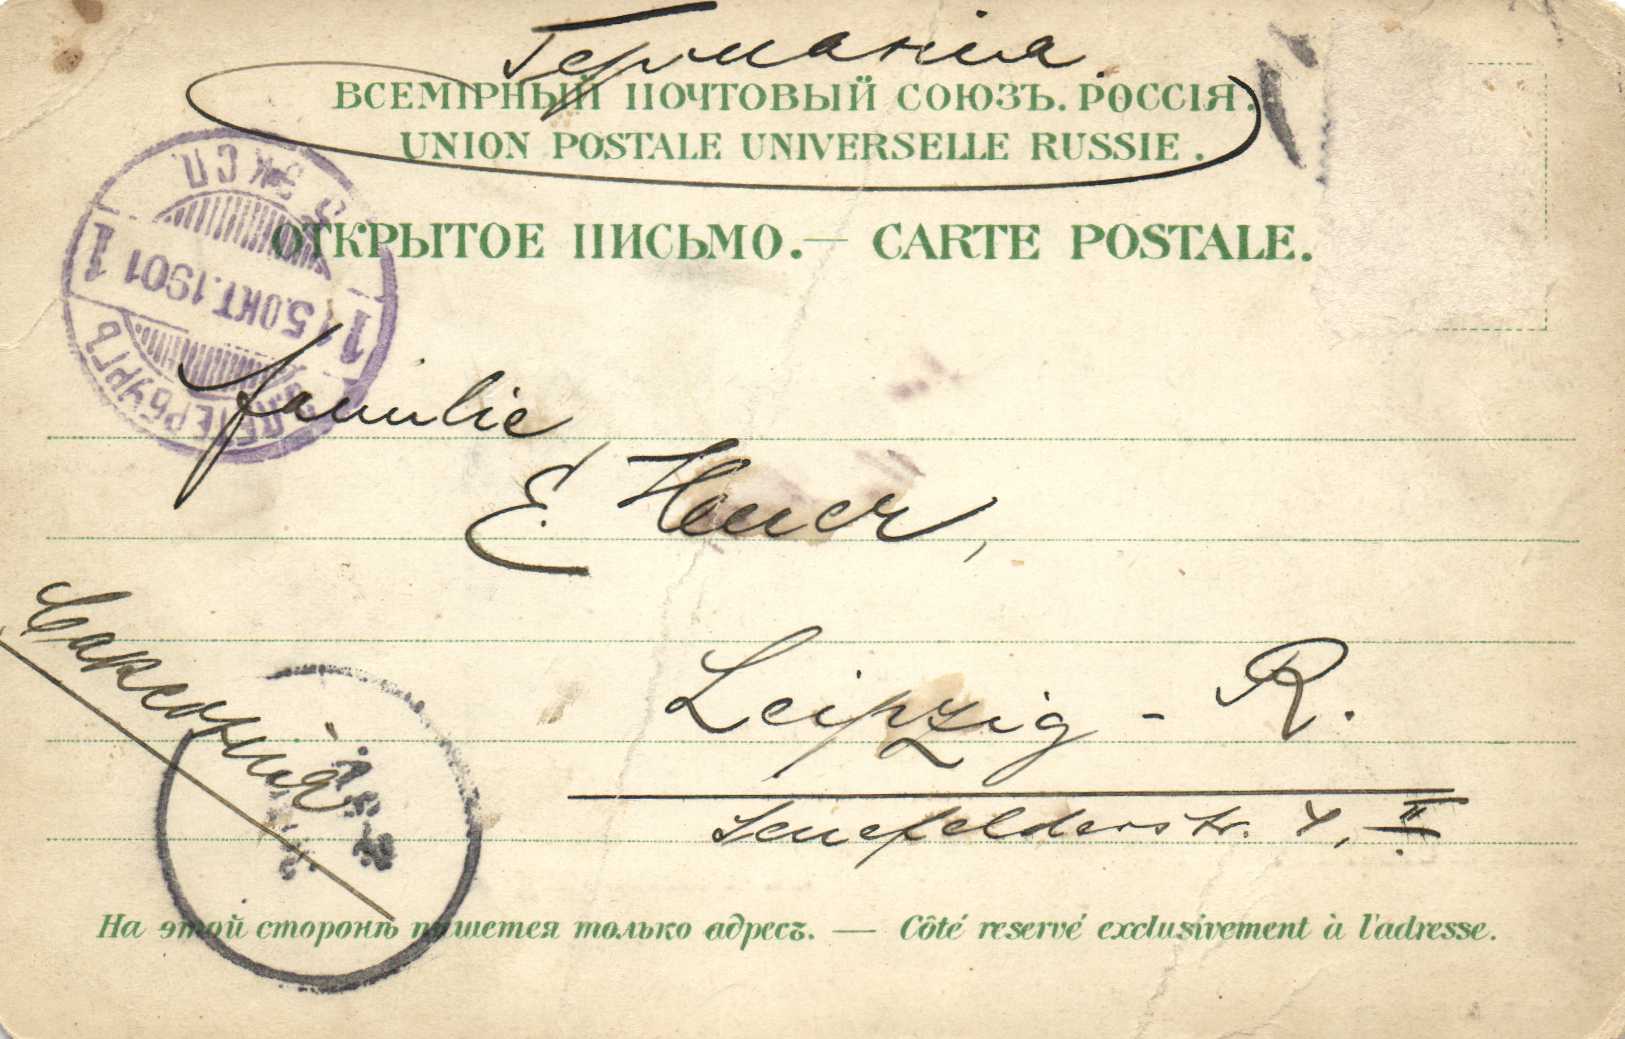 Германія.
ВСЕМІРНЫЙ ПОЧТОВЫЙ СОЮЗЪ. РОССІЯ.
UNION POSTALE UNIVERSELLE RUSSIE.
ОТКРЫТОЕ ПИСЬМО.— CARTE POSTALE.
ЭКСП.
1 15.ОКТ.1901 1
ПЕТЕРБУРГЪ
Familie
E. Heuer,
Саксонія
Leipzig - R.
Senefelderstr. 4, II.
На этой сторонѣ пишется только адресъ. — Côté reservé exclusivement à l'adresse.